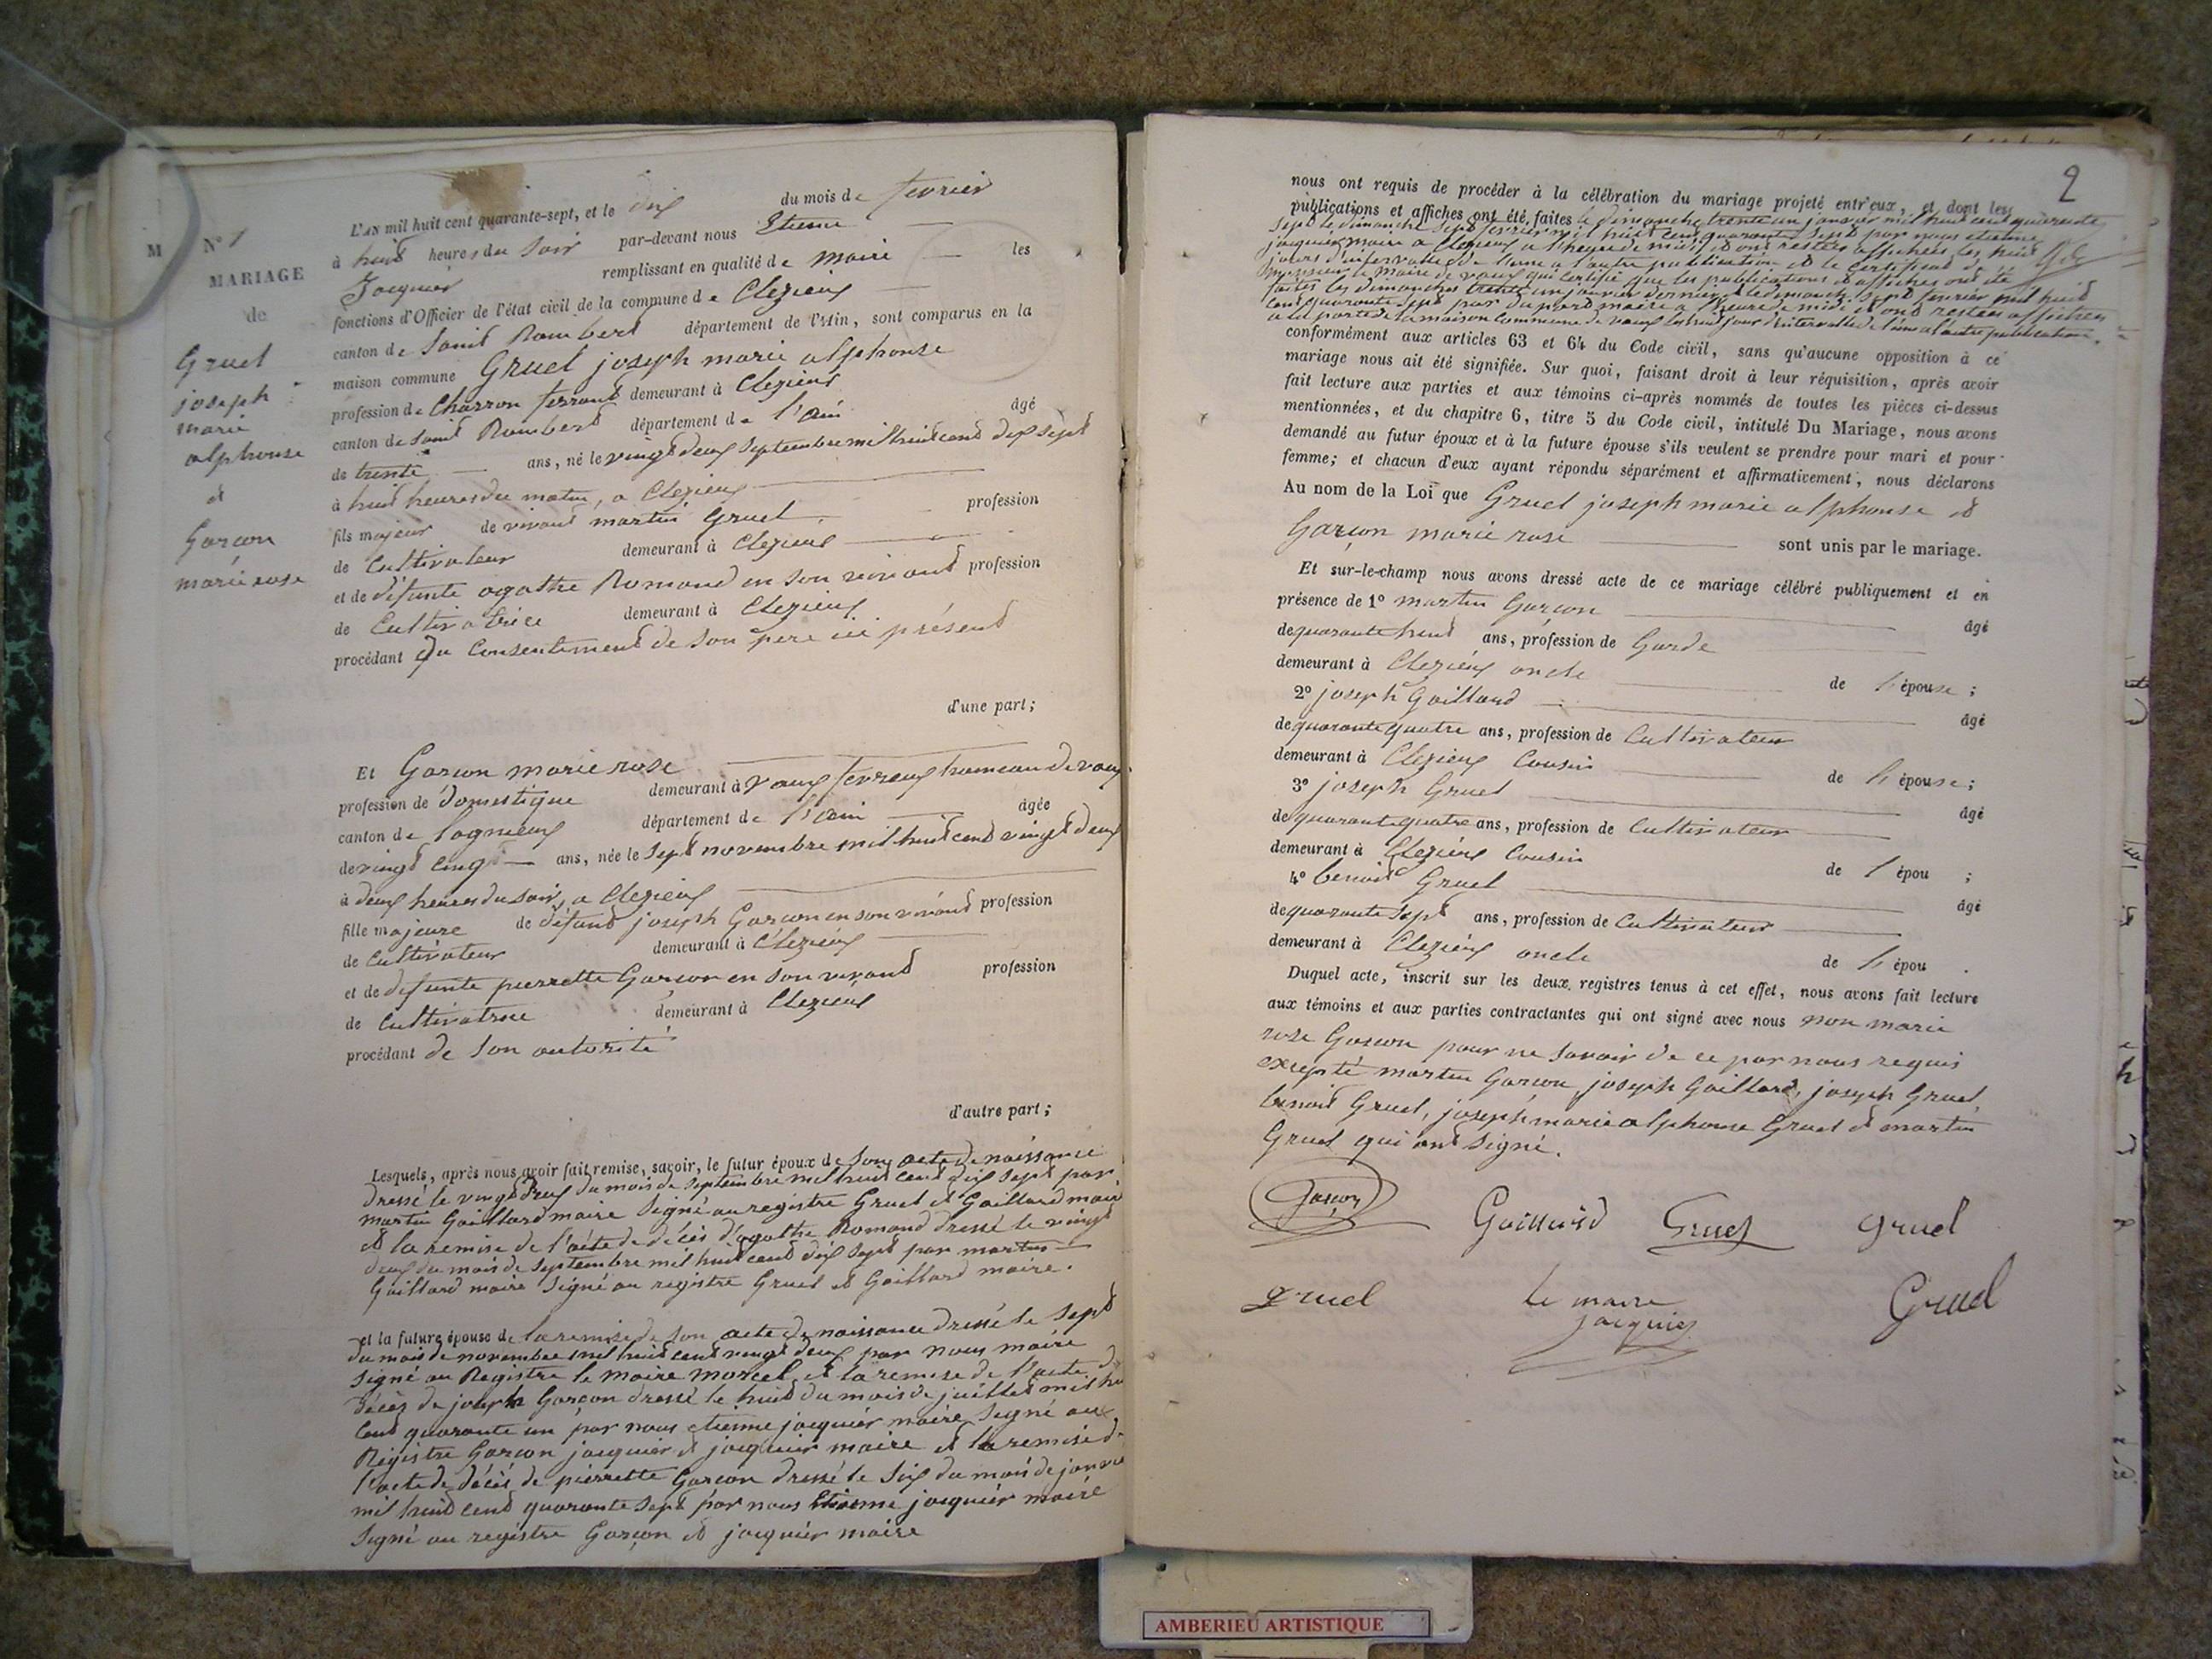 M
N° 1
MARIAGE
de
Gruel
joseph
marie
alphonse
et
Garçon
marie rose
L'AN mil huit cent quarante-sept, et le dix du mois de fevrier
à huit heures du soir par-devant nous Etienne
Jacquier remplissant en qualité de maire les
fonctions d'Officier de l'état civil de la commune de Clezieux
canton de Saint Rambert département de l'Ain, sont comparus en la
maison commune Gruel joseph marie alphonse
profession de Charron ferrant demeurant à Clezieux
canton de Saint Rambert département de l'Ain âgé
de trente ans, né le vingt deux septembre mil huit cent dix sept
à huit heures du matin, a Clezieux
fils majeur de vivant martin Gruel profession
de Cultivateur demeurant à Clezieux
et de défunte agathe Romand en son vivant profession
de Cultivatrice demeurant à Clezieux
procédant du Consentement de son pere ici présent
d'une part;
Et Garçon marie rose
profession de domestique demeurant à vaux fevroux hameau de vaux
canton de lagnieux département de l'ain âgée
de vingt cinq ans, née le sept novembre mil huit cent vingt deux
à deux heures du soir, a Clezieux
fille majeure de défunt joseph Garçon en son vivant profession
de Cultivateur demeurant à Clezieux
et de defunte pierrette Garçon en son vivant profession
de Cultivatrice demeurant à Clezieux
procédant de son autorité
d'autre part;
Lesquels, après nous avoir fait remise, savoir, le futur époux de son acte de naissance
dressé le vingt deux du mois de septembre mil huit cent dix sept par
martin Gaillard maire signé au registre Gruel et Gaillard maire
et la remise de l'acte de décès d'agathe Romand dressé le vingt
deux du mois de septembre mil huit cent dix sept par martin
Gaillard maire signé au registre Gruel et Gaillard maire.
et la future épouse de la remise de son acte de naissance dressé le sept
du mois de novembre mil huit cent vingt deux par nous maire
signé au Registre le maire morcel et la remise de l'acte d
décès de joseph Garçon dressé le huit du mois de juillet mil hui
cent quarante un par nous etienne jacquier maire signé au
Registre Garçon jacquier et jacquier maire et la remise d
l'acte de décès de pierrette Garçon dressé le six du mois de janvie
mil huit cent quarante sept par nous Etienne jacquier maire
signé au registre Garçon et jacquier maire
2
nous ont requis de procéder à la célébration du mariage projeté entr'eux, et dont les
publications et affiches ont été faites le dimanche trente un janvier mil huit cent quarante
sept le dimanche sept fevrier mil huit cent quarante sept par nous etienne
jacquier maire a Clezieux a l'heure de midi et ont restées affichées les huit
jours d'intervalle de l'une a l'autre publication et le certificat de
monsieur le maire de vaux qui certifie que les publications et affiches ont été
faites les dimanches trente un janvier dernier et le dimanche sept fevrier mil huit
cent quarante sept par du nord maire a l'heure de midi et ont restées affichées
a la porte de la maison commune de vaux les huit jours d'intervalle de l'une a l'autre publication.
conformément aux articles 63 et 64 du Code civil, sans qu'aucune opposition à ce
mariage nous ait été signifiée. Sur quoi, faisant droit à leur réquisition, après avoir
fait lecture aux parties et aux témoins ci-après nommés de toutes les pièces ci-dessus
mentionnées, et du chapitre 6, titre 5 du Code civil, intitulé Du Mariage, nous avons
demandé au futur époux et à la future épouse s'ils veulent se prendre pour mari et pour
femme; et chacun d'eux ayant répondu séparément et affirmativement, nous déclarons
Au nom de la Loi que Gruel joseph marie alphonse et
Garçon marie rose sont unis par le mariage.
Et sur-le-champ nous avons dressé acte de ce mariage célébré publiquement et en
présence de 1° martin Garçon âgé
de quarante huit ans, profession de Garde
demeurant à Clezieux oncle de l'épouse;
2° joseph Gaillard âgé
de quarante quatre ans, profession de Cultivateur
demeurant à Clezieux Cousin de l'épouse;
3° joseph Gruel âgé
de quarante quatre ans, profession de Cultivateur
demeurant à Clezieux Cousin de l'épou ;
4° benoit Gruel âgé
de quarante sept ans, profession de Cultivateur
demeurant à Clezieux oncle de l'épou .
Duquel acte, inscrit sur les deux registres tenus à cet effet, nous avons fait lecture
aux témoins et aux parties contractantes qui ont signé avec nous non marie
rose Garçon pour ne savoir de ce par nous requis
excepté martin Garçon, joseph Gaillard, joseph Gruel,
benoit Gruel, joseph marie alphonse Gruel et martin
Gruel qui ont signé.
Garçon Gaillard Gruel gruel
gruel le maire Gruel
jacquier
AMBERIEU ARTISTIQUE